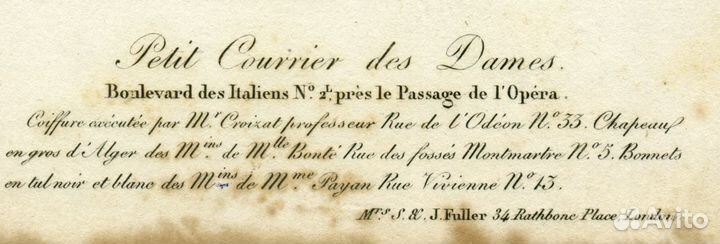 Petit Courrier des Dames.
Boulevard des Italiens N.º 2, près le Passage de l'Opéra.
Coiffure exécutée par M.r Croizat professeur Rue de l'Odéon N.º 33. Chapeaux
en gros d'Alger des M.ins de M.lle Bonté Rue des fossés Montmartre N.º 5. Bonnets
en tul noir et blanc des M.ins de M.me Payan Rue Vivienne N.º 13.
M.rs S. & J. Fuller 34 Rathbone Place, London
Avito